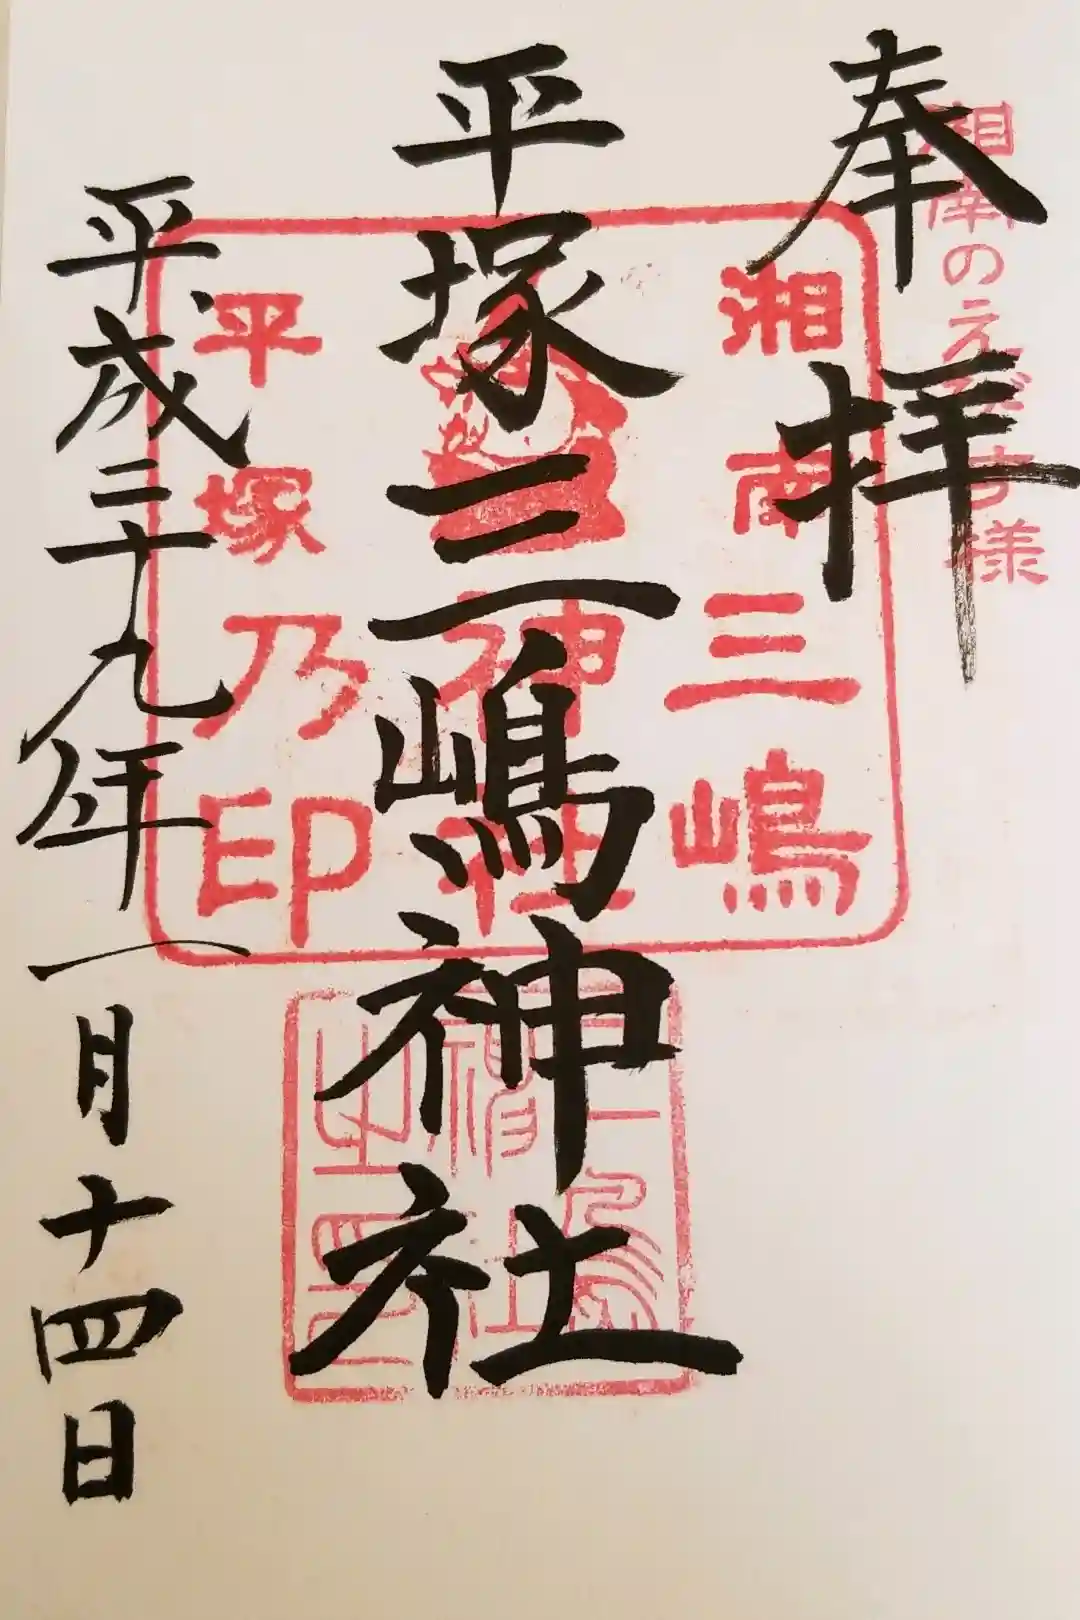 奉拝
湘南のえびす様
平塚三嶋神社
平成二十九年一月十四日
湘南三嶋
神社
平塚乃印
三嶋
神社
之印